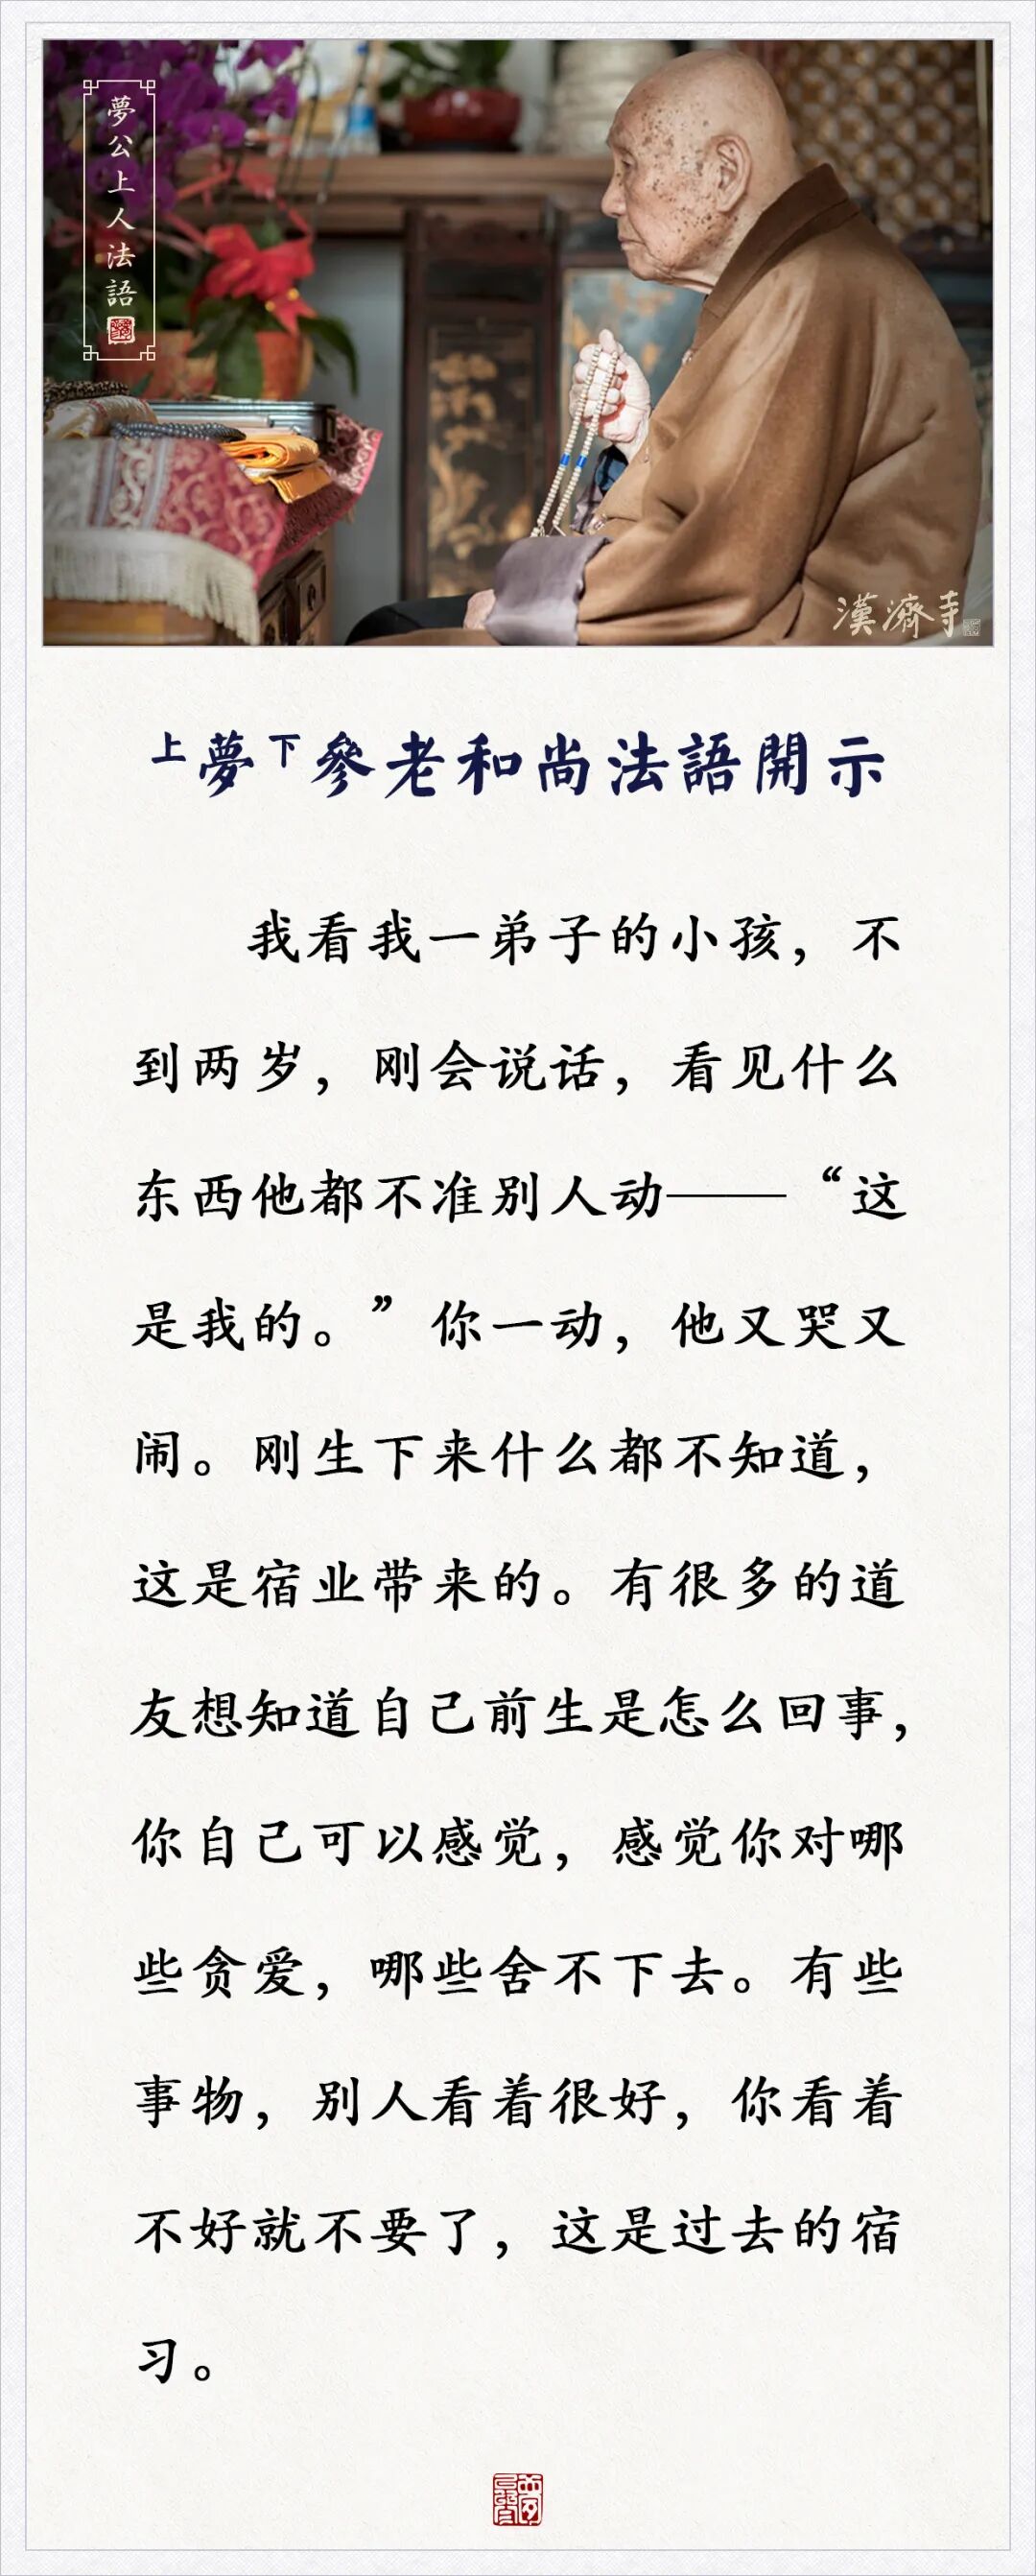 夢公上人法語
漢濟寺
上夢下參老和尚法語開示
我看我一弟子的小孩，不
到两岁，刚会说话，看见什么
东西他都不准别人动——“这
是我的。”你一动，他又哭又
闹。刚生下来什么都不知道，
这是宿业带来的。有很多的道
友想知道自己前生是怎么回事，
你自己可以感觉，感觉你对哪
些贪爱，哪些舍不下去。有些
事物，别人看着很好，你看着
不好就不要了，这是过去的宿
习。